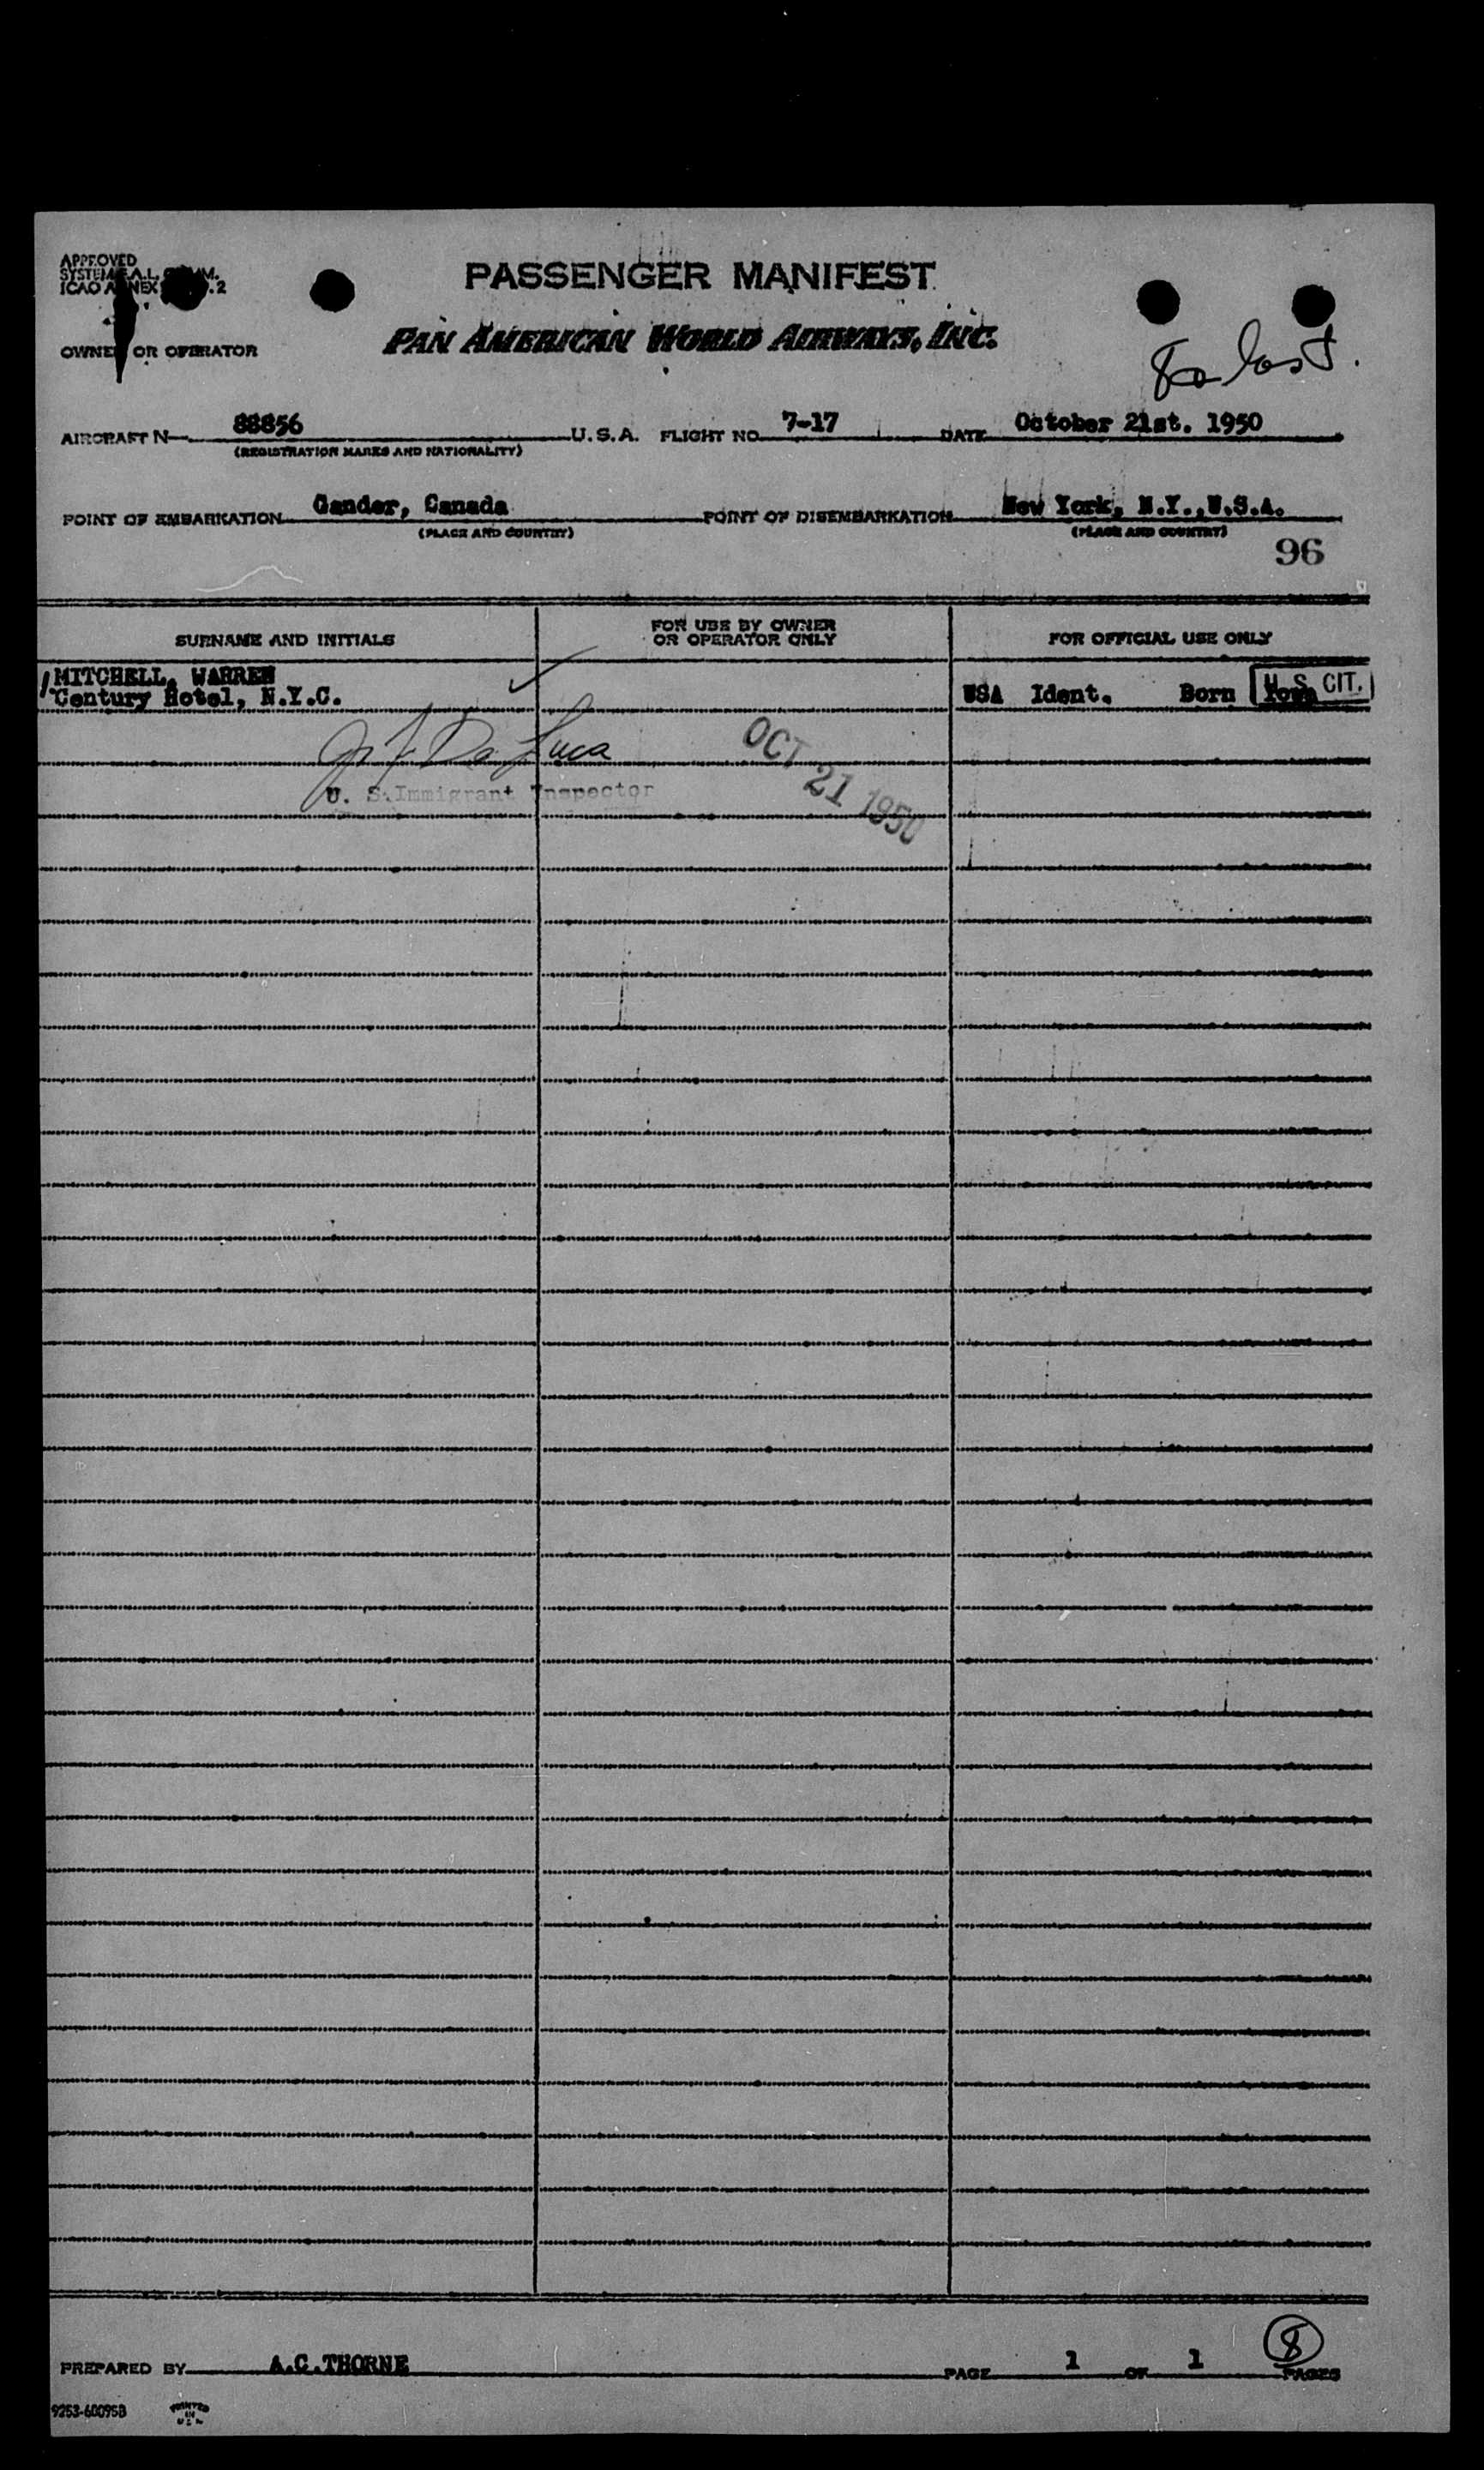 APPROVED
SYSTEM
ICAO
PASSENGER MANIFEST
PAN AMERICAN WORLD AIRWAYS, INC.
OWNER OR OPERATOR
AIRCRAFT N 88856 U.S.A. FLIGHT NO. 7-17 DATE October 21st. 1950
(REGISTRATION MARKS AND NATIONALITY)
POINT OF EMBARKATION Gander, Canada POINT OF DISEMBARKATION New York, N.Y.,U.S.A.
(PLACE AND COUNTRY) (PLACE AND COUNTRY)
96
SURNAME AND INITIALS FOR USE BY OWNER OR OPERATOR ONLY FOR OFFICIAL USE ONLY
MITCHELL, WARREN
Century Hotel, N.Y.C. USA Ident. Born Iowa U.S. CIT.
De Luca
U. S. Immigrant Inspector
OCT 21 1950
PREPARED BY A.C.THORNE PAGE 1 OF 1 PAGES
8
9253-60095B PRINTED IN U.S.A.